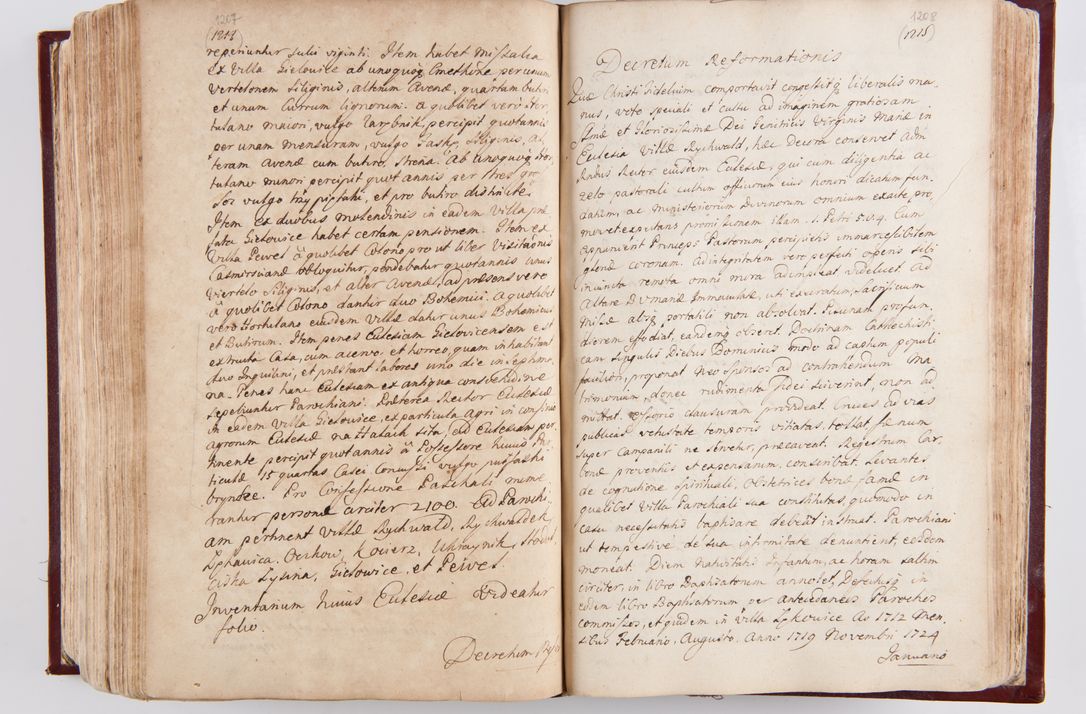 1207
(1214)
reperiuntur sulci viginti. Item habet missalia
ex Villa Gielovice ab unoquoq Cmethone per unum
Vertelonem Siliginis, alterum Avenæ, quartam butiri
et unum Currum lignorum. a quolibet vero Hor¬
tulano maiori, vulgo Zarębnik, percipit quotannis
per unam mensuram, vulgo Faskę, Siliginis, al¬
teram avenæ cum butiro, strena. Ab unoquoq Hor¬
tulano minori percipit quotannis per tres gro
sos vulgo trzy pięłaki, et pro butiro distincte.
Item ex duobus molendinis in eadem Villa præ¬
fata Gielowice habet certam pensionem. Item ex
Villa Pewel à quolibet Colono, prout liber Visitaõnis
Casimirsciana obloquitur, pendebatur quotannis unus
Viertelo Siliginis, et alter Avenæ, ad præsens vero
à quolibet Colono dantur duo Bohemici. a quolibet
vero Hortulano eiusdem Villæ datur unus Bohemicus
et Butirum. Item penes Eulesiam Gielovicensem est
extructa Casa, cum acervo et horreo, quam inhabitant
duo Inquilini, et præstant labores uno die in septima¬
na. Penes hanc Eulesiam ex antiqua consvetudine
sepeliuntur Parochiani. Præterea Rector Eulesiæ
in eadem Villa Gielovice, ex particula agri in confinio
agrorum Eulesiæ na Halach sita, ad Eulesiam per¬
tinente percipit quotannis à Possessore huius Par
ticulæ 15 quartas Casei
bryndze. Pro Confessione Paschali nume¬
rantur personæ circiter 2100. Ad Parochi¬
am pertinent Villæ Rychwald, Rychwaldek,
Łękavica, Oczkow, Kocierz, Ukraynik,
Łysina, Gielowice, et Pewel.
Inventarium huius Eulesiæ Videatur
folio.
Decretum

1208
(1215)
Decretum Reformationis
Quæ Christi fidelium comportavit congessitq liberalis ma¬
nus, voto speciali et cultu ad imaginem gratiosam
Smæ et Gloriosissimæ Dei Genitricis Virginis Mariæ in
Eulesia Villæ Rychwald, hæc Decora conservet Adm
Rndus Rector eiusdem Eulesiæ, qui cum diligentia ac
zelo pastorali cultum offivorum eius honori dicatum fun¬
datum, ac ministeriorum Divinorum omnium exacte pro¬
movet expectans promissionem illam. 1. Petri 5. v. 4. Cum
apparuerit Princeps Pastorum percipietis immarcessibilem
gloriæ coronam. Ad integritatem vero perfecti operis sibi
iniuncti remota omni mora adimpleat videlicet. Ad
Altare BVMariæ Immaculatæ, uti execratum, sacrificium
Missæ absq portatili non absolvat. Piscinam profun¬
diorem effodiat, eandemq obseret. Doctrinam Cathechisti¬
cam singulis Diebus Dominicis modo ad captum populi
facilion, proponat. Neo sponsos ad contrahendum Ma
trimonium, donec rudimenta Fidei sciverint, non ad¬
mittat. Ossorio clausuram provideat. Cruces ad vias
publicas vetustate temporis vitiatas, tollat fænum
super Campanili ne servetur, præcaveat. Regestrum Car¬
bonæ proventus et expensarum, conscribat. Levantes
de cognatione spirituali, Obstetrices bonæ famæ in
qualibet Villa Parochiali sua constitutas, quomodo in
casu necessitatis baptizare debeat instruat. Parochiani
ut tempestivè de sua infirmitate denuntient, eosdem
moneat. Diem nativitatis Infantium, ac horam saltim
circiter, in libro Baptisatorum annotet, Defectusq in
eodem libro Baptisatorum per antecedaneos Parochos
commissos, et quidem in Villa Łękovice Ao 1712 Men¬
sibus Februario, Augusto, Anno 1719 Novembri 1724
Januario